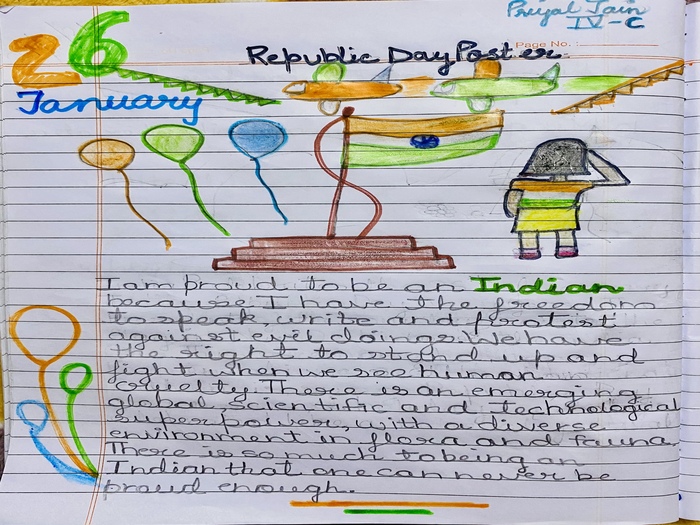 Priyal Jain
IV-C
Page No.:
26
January
Republic Day Poster
I am proud to be an Indian
because I have the freedom
to speak, write and protest
against evil doings. We have
the right to stand up and
fight when we see human
cruelty. There is an emerging
global, scientific and technological
super power, with a diverse
environment in flora and fauna.
There is so much to being an
Indian that one can never be
proud enough.